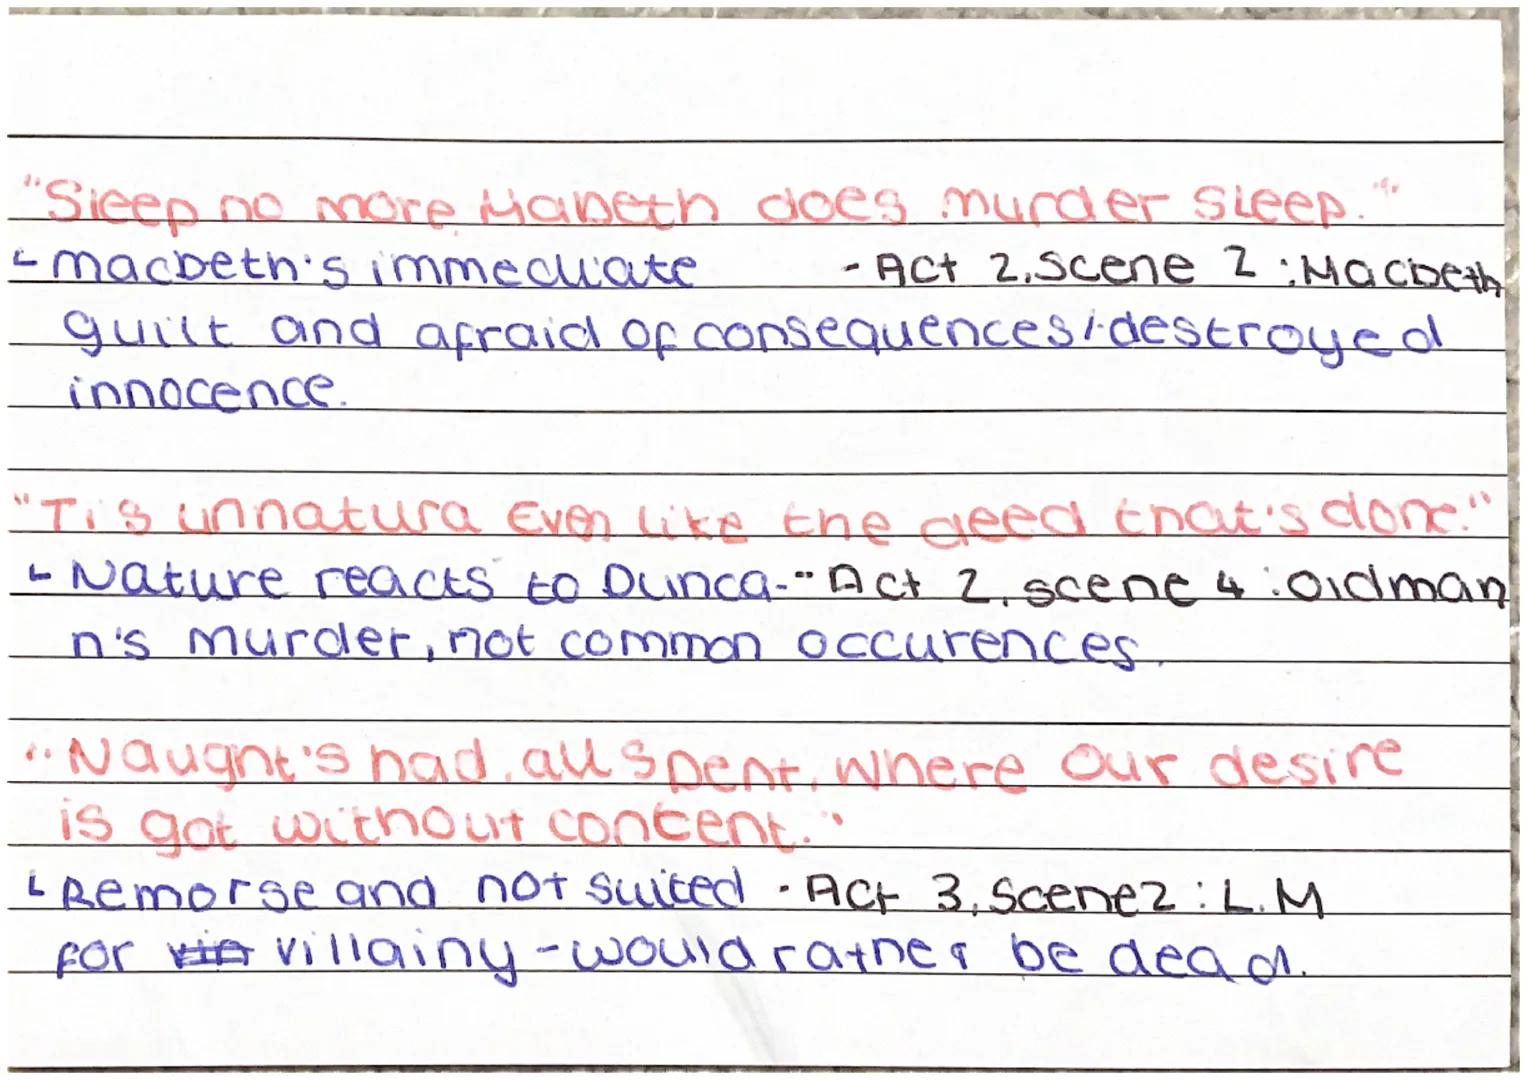 "Sleep no more Mabeth does murder sleep."
macbeth's immediate - Act 2, scene 2 : Macbeth
guilt and afraid of consequences/destroyed
innocence.
"Tis unnatura Even like the deed that's done."
Nature reacts to Dunca- - Act 2, scene 4 : oldman
n's murder, not common occurences.
"Naught's had, all spent, where our desire
is got without content."
Remorse and not suited - Act 3, Scene 2 : L.M
for villainy - would rather be dead.